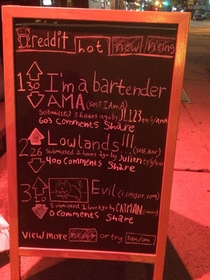 reddit hot new rising
1 30 I'm a bartender
AMA (self.IAmA)
Submitted 3 hours ago by
603 Comments Share
2 26 Lowlands!!!
Submitted 2 hours ago by Julien
400 Comments Share
3 Evil (imgur.com)
Submitted 1 hour ago by CATMAN
0 Comments Share
VIEW MORE next or try